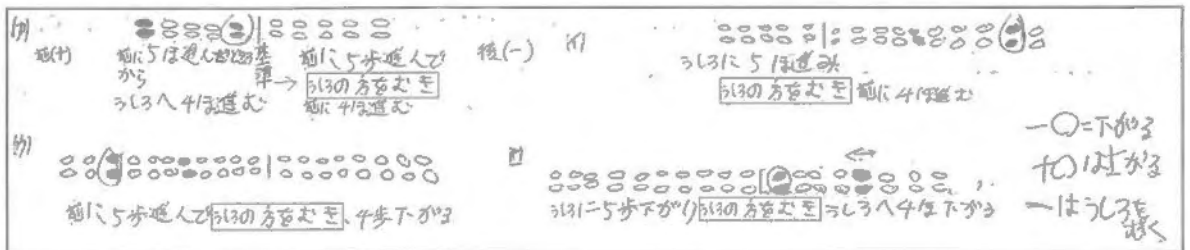 (ア)
前(+)
後(-)
前に5ほ進んだところ
から
うしろへ4ほ進む
基
準
→
前に5歩進んで
うしろの方をむき
前に4ほ進む
(イ)
うしろに5ほ進み
うしろの方をむき 前に4ほ進む
(ウ)
前に、5歩進んでうしろの方をむき、4歩下がる
エ
うしろに5歩下がりうしろの方をむきうしろへ4ほ下がる
-〇=下がる
+〇は上がる
-はうしろを
むく